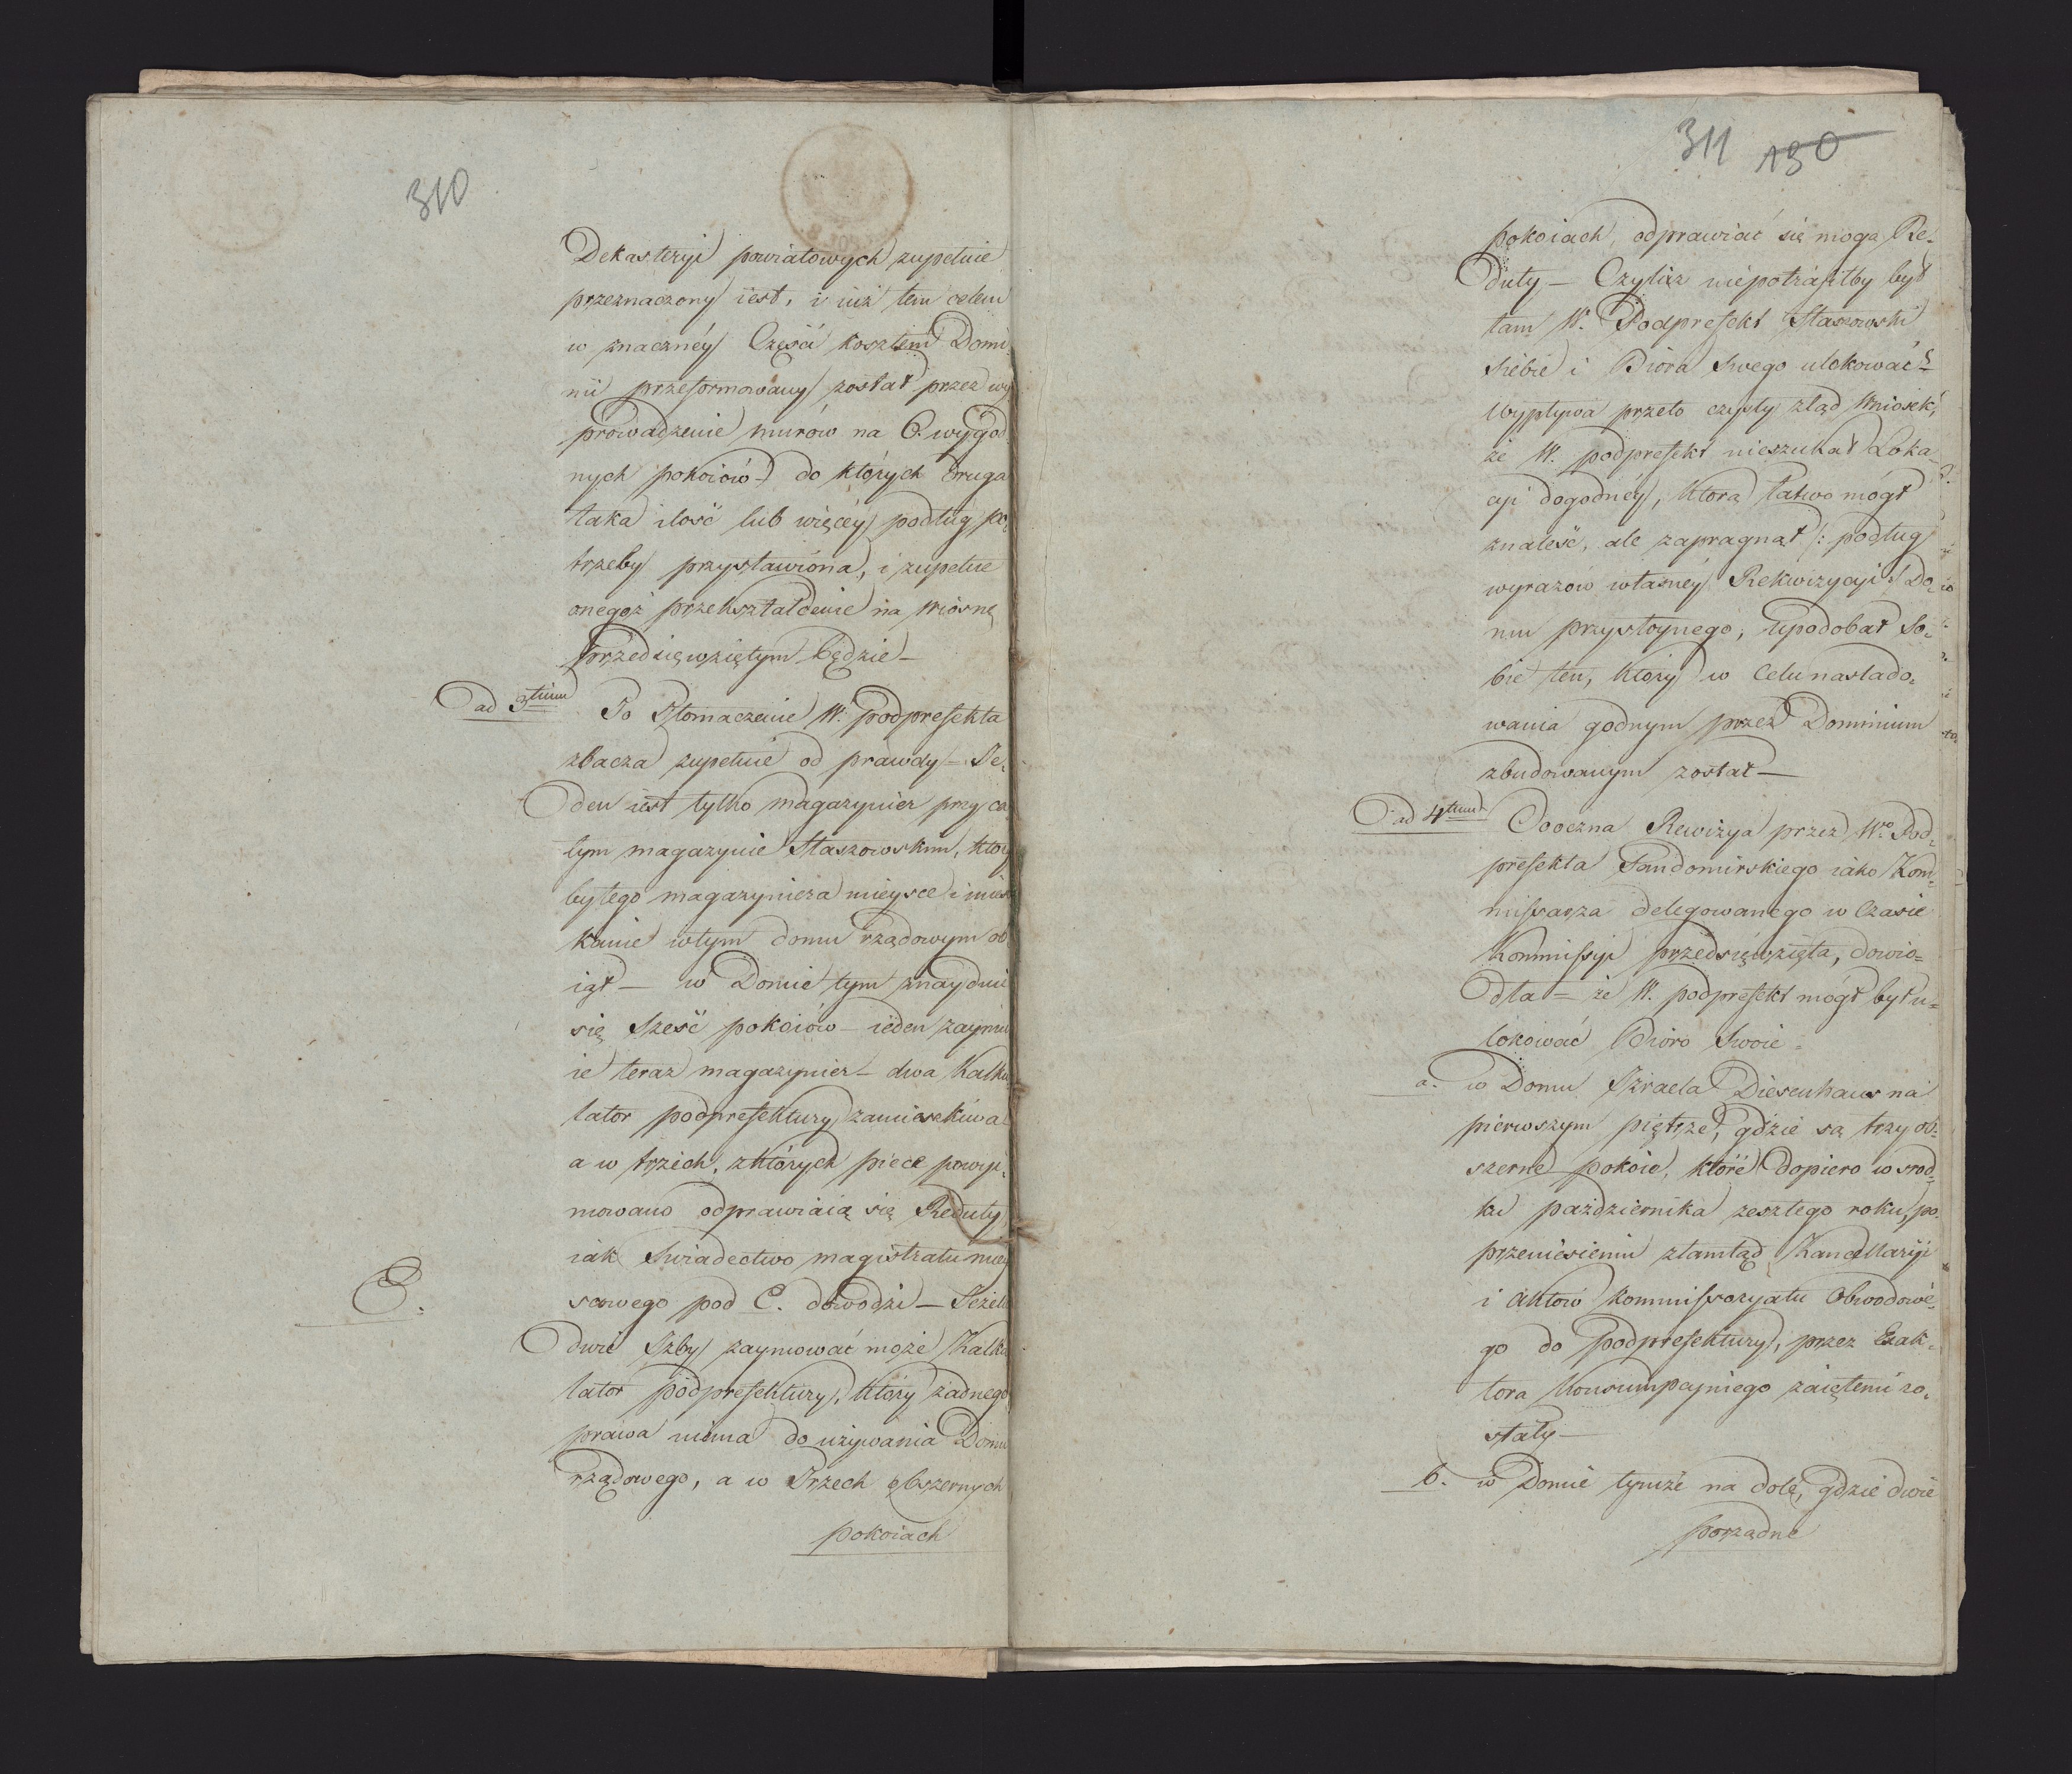 310
Dekasteryi powiatowych zupełnie
przeznaczony iest, i iuż tem celem
w znacznéy Części kosztem Domi
nii przeformowany został przez wy
prowadzenie murów na 6. wygod
nych pokoiów do których druga
taka ilość lub więcéy podług po
trzeby przystawiona, i zupełne
onegoż przekształcenie na wiosnę
przedsięwziętym będzie —
ad 3tium To Tłomaczenie W. podprefekta
zbacza zupełnie od prawdy — Ie-
den iest tylko magazynier przy ca
łym magazynie Staszowskim, który
byłego magazyniera mieysce i miesz
kanie w tym domu rządowym ob
iął — w Domie tym znayduie
się sześć pokoiów — ieden zaymu
ie teraz magazynier — dwa Kalku
lator podprefektury zamieszkiwa
a w trzech, z których piece powyi-
mowano odprawiaią się Reduty,
iak Swiadectwo magistratu miey
E.
scowego pod E. dowodzi — Ieżeli
dwie Izby zaymować może Kalku
lator podprefektury, który żadnego
prawa niema do używania Domu
rządowego, a w Trzech obszernych
pokoiach
311 130
pokoiach, odprawiać się mogą Re-
duty — Czyliż niepotrafiłby był
tam W. Podprefekt Staszowski
siebie i Bióra swego ulokować?
Wypływa przeto czysty ztąd wniosek,
że W. podprefekt nieszukał Loka
cyi dogodnéy, którą łatwo mógł
znaleść, ale zapragnął /: podług
wyrazów własnéy Rekwizycyi :/ Do-
mu przystoynego, Upodobał So-
bie ten, który w Celu naslado-
wania godnym przez Dominium
zbudowanym został —
ad 4tum Ooczna Rewizya przez Wo. Pod-
prefekta Sandomirskiego iako Kom-
missarza delegowanego w Czasie
Kommissyi przedsięwzięta, dowio-
dła — że W. podprefekt mógł był u-
lokować Bióro Swoie =
a. w Domu Izraela Diesenhaus na
pierwszym piętrze, gdzie są trzy ob-
szerne pokoie, które dopiero w srod-
ku pazdziernika zeszłego roku, po
przeniesieniu ztamtąd Kancellaryi
i Aktów Kommissoryatu Obwodowe-
go do Podprefektury, przez Exak-
tora Konsumpcyinego zaiętemi zo-
stały —
b. w Domie tymże na dole, gdzie dwie
porządne